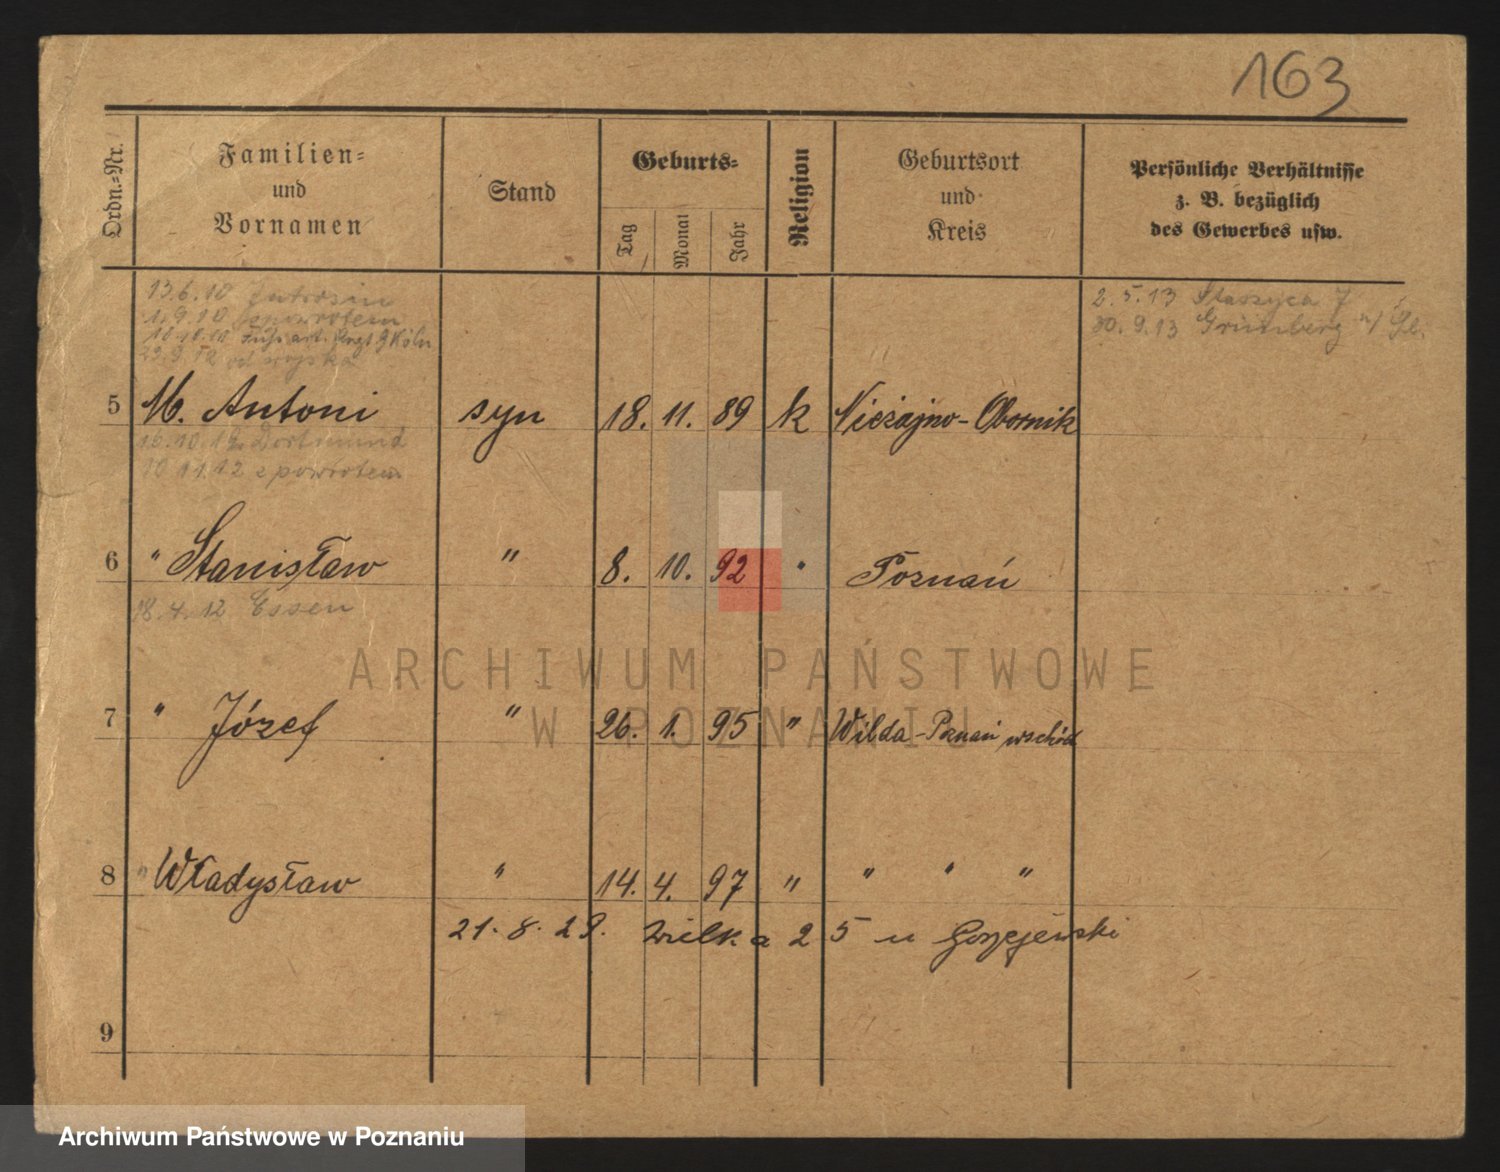 163
Ordn.=Nr.
Familien=
und
Vornamen
Stand
Geburts=
Tag
Monat
Jahr
Religion
Geburtsort
und
Kreis
Persönliche Verhältnisse
z. B. bezüglich
des Gewerbes usw.
13.6.10 Jutrosin
1.9.10 zpowrotem
10.10.10 Fußs art. Regt 9 Köln
29.9.12 od wojska
2.5.13 Staszyca 7
30.9.13 Grünberg n/ Śl.
5 M. Antoni syn 18. 11. 89 k Nieżajno - Obornik
10.10.12 Dortmund
10 11.12 z powrotem
6 " Stanisław " 8. 10. 92 " Poznań
18.4.12 Essen
ARCHIWUM PAŃSTWOWE
W POZNANIU
7 " Józef " 26. 1. 95 " Wilda - Poznań wschód
8 " Władysław " 14. 4. 97 " " " "
21. 8. 29. Wielka 25 u
9
Archiwum Państwowe w Poznaniu